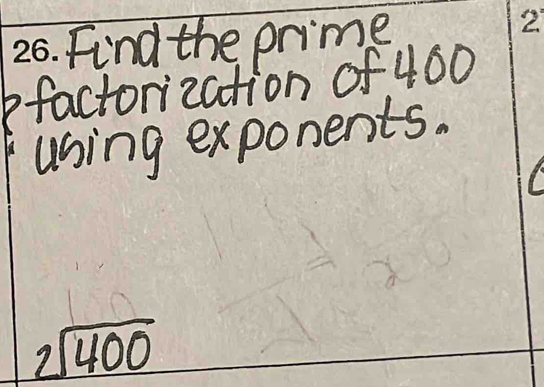 26. Find the prime
factorization of 400
using exponents.
2
2√400